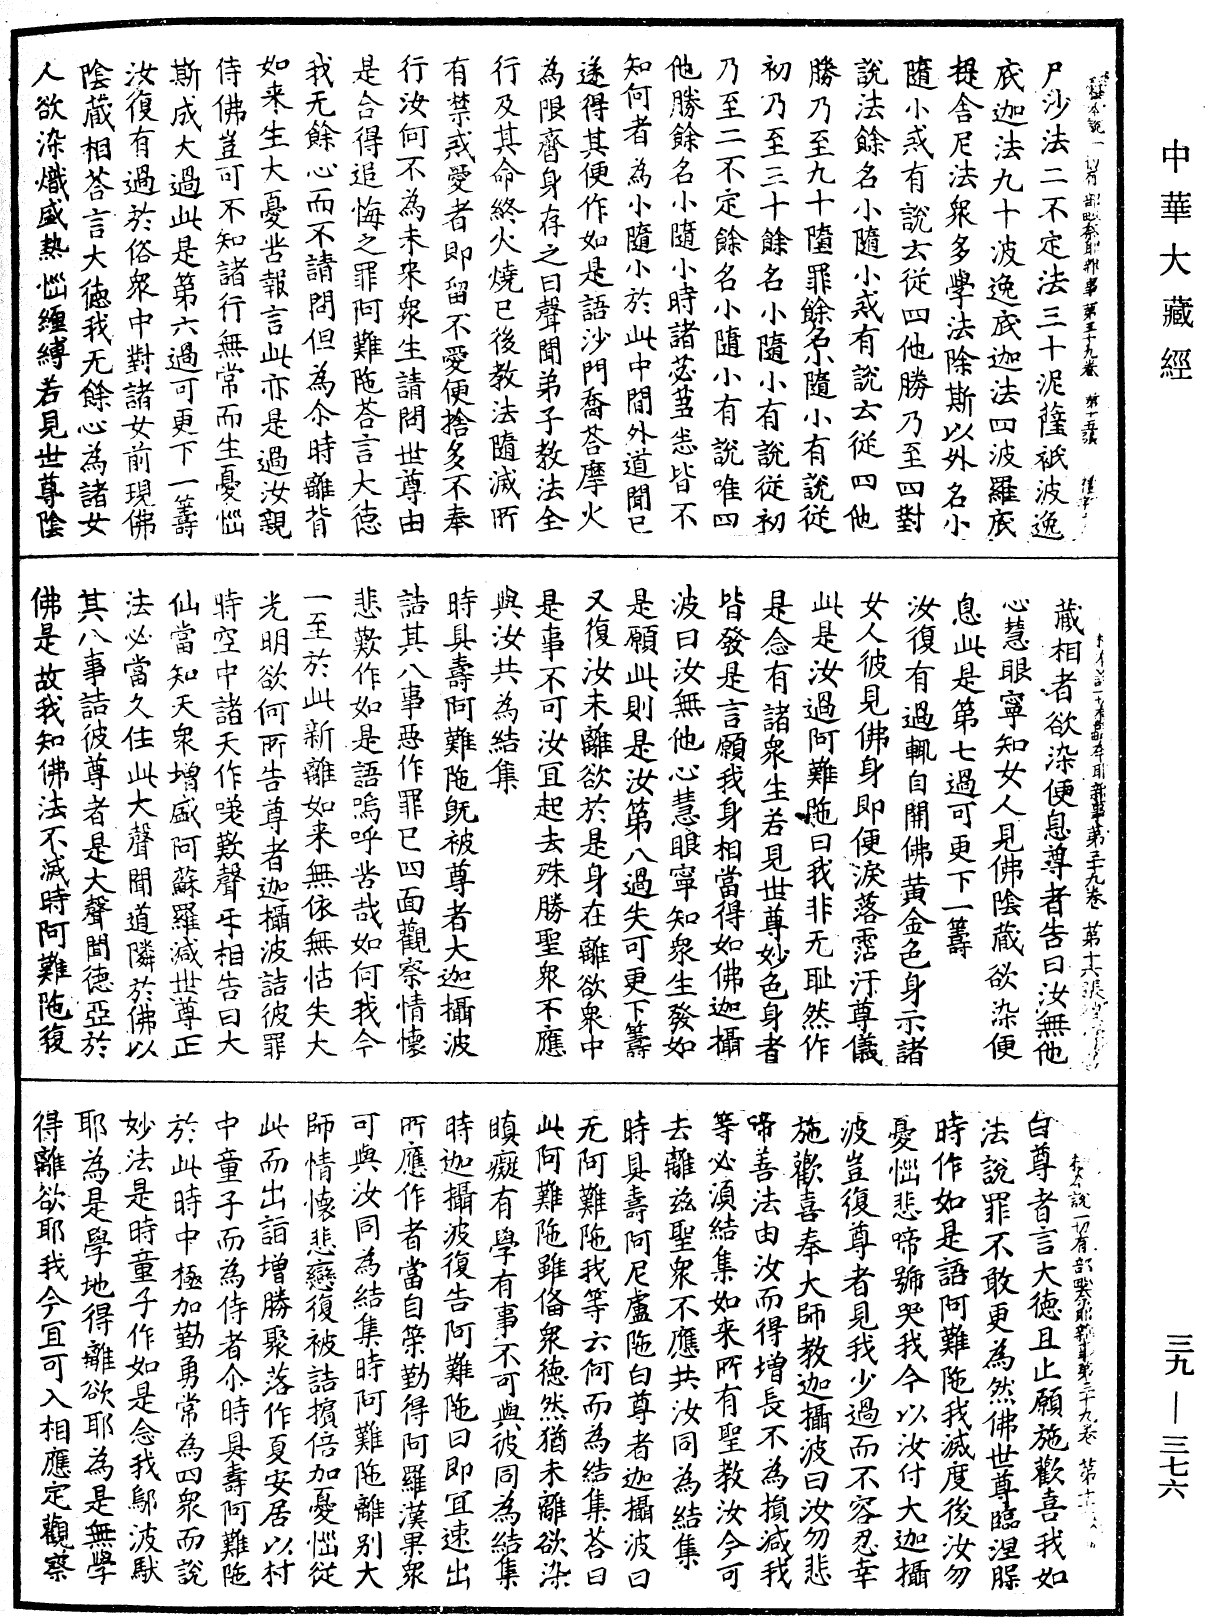 中華大藏經
三九—三七六
尸沙法二不定法三十泥薩祇波逸
底迦法九十波逸底迦法四波羅底
提舍尼法衆多學法除斯以外名小
隨小或有說云從四他勝乃至四對
說法餘名小隨小或有說云從四他
勝乃至九十墮罪餘名小隨小有說從
初乃至三十餘名小隨小有說從初
乃至二不定餘名小隨小有說唯四
他勝餘名小隨小時諸苾芻悉皆不
知何者為小隨小於此中間外道聞已
遂得其便作如是語沙門喬荅摩火
為限齊身存之日聲聞弟子教法全
行及其命終火燒已後教法隨滅所
有禁戒愛者即留不愛便捨多不奉
行汝何不為未來衆生請問世尊由
是合得追悔之罪阿難陁荅言大德
我无餘心而不請問但為尒時離背
如來生大憂苦報言此亦是過汝親
侍佛豈可不知諸行無常而生憂惱
斯成大過此是第六過可更下一籌
汝復有過於俗衆中對諸女前現佛
陰藏相荅言大德我无餘心為諸女
人欲染熾盛熱惱纏縛若見世尊陰
藏相者欲染便息尊者告曰汝無他
心慧眼寧知女人見佛陰藏欲染便
息此是第七過可更下一籌
汝復有過輒自開佛黃金色身示諸
女人彼見佛身即便淚落霑汙尊儀
此是汝過阿難陁曰我非无恥然作
是念有諸衆生若見世尊妙色身者
皆發是言願我身相當得如佛迦攝
波曰汝無他心慧眼寧知衆生發如
是願此則是汝第八過失可更下籌
又復汝未離欲於是身在離欲衆中
是事不可汝冝起去殊勝聖衆不應
與汝共為結集
時具壽阿難陁旣被尊者大迦攝波
詰其八事惡作罪已四面觀察情懷
悲歎作如是語嗚呼苦哉如何我今
一至於此新離如來無依無怙失大
光明欲何所告尊者迦攝波詰彼罪
時空中諸天作嗟歎聲㸦相告曰大
仙當知天衆增盛阿蘇羅減世尊正
法必當久住此大聲聞道隣於佛以
其八事詰彼尊者是大聲聞德亞於
佛是故我知佛法不滅時阿難陁復
白尊者言大德且止願施歡喜我如
法說罪不敢更為然佛世尊臨涅槃
時作如是語阿難陁我滅度後汝勿
憂惱悲啼號哭我今以汝付大迦攝
波豈復尊者見我少過而不容忍幸
施歡喜奉大師教迦攝波曰汝勿悲
啼善法由汝而得增長不為損減我
等必須結集如來所有聖教汝今可
去離茲聖衆不應共汝同為結集
時具壽阿尼盧陁白尊者迦攝波曰
无阿難陁我等云何而為結集荅曰
此阿難陁雖俻衆德然猶未離欲染
瞋癡有學有事不可與彼同為結集
時迦攝波復告阿難陁曰即冝速出
所應作者當自策勤得阿羅漢果衆
可與汝同為結集時阿難陁離别大
師情懷悲戀復被詰擯倍加憂惱從
此而出詣增勝聚落作夏安居以村
中童子而為侍者尒時具壽阿難陁
於此時中極加勤勇常為四衆而說
妙法是時童子作如是念我鄔波馱
耶為是學地得離欲耶為是無學
得離欲耶我今冝可入相應定觀察